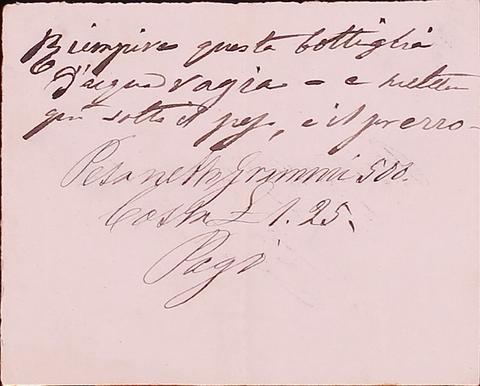 Riempire questa bottiglia
d'acqua ragia - e mettere
qui sotto il peso, e il prezzo -
Peso netto Grammi 500.
Costa £ 1.25.
Pagi